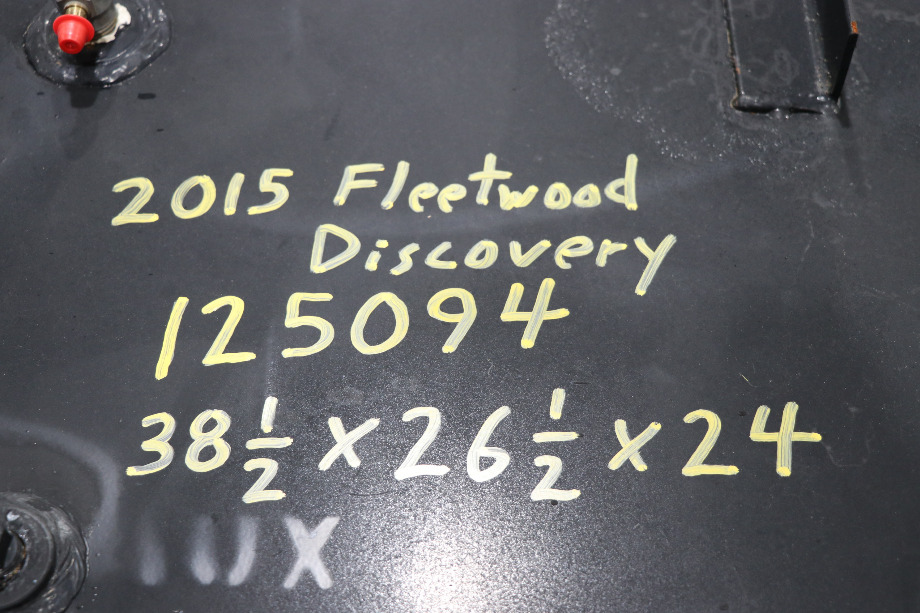 2015 Fleetwood
Discovery
125094
38 1/2 x 26 1/2 x 24
X